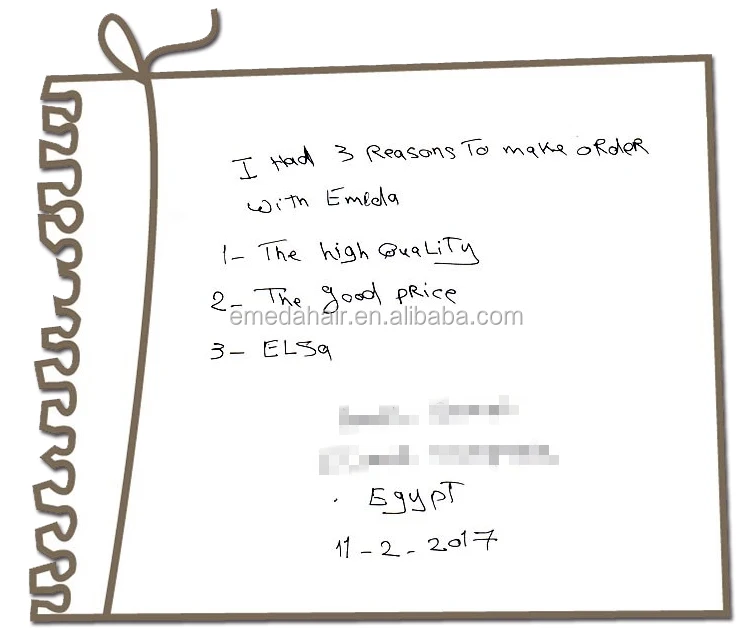 I Had 3 Reasons To make oRdeR
with Emeda
1- The high QuaLiTy
2- The good pRice
emedahair.en.alibaba.com
3- ELSa
. Egypt
11-2-2017